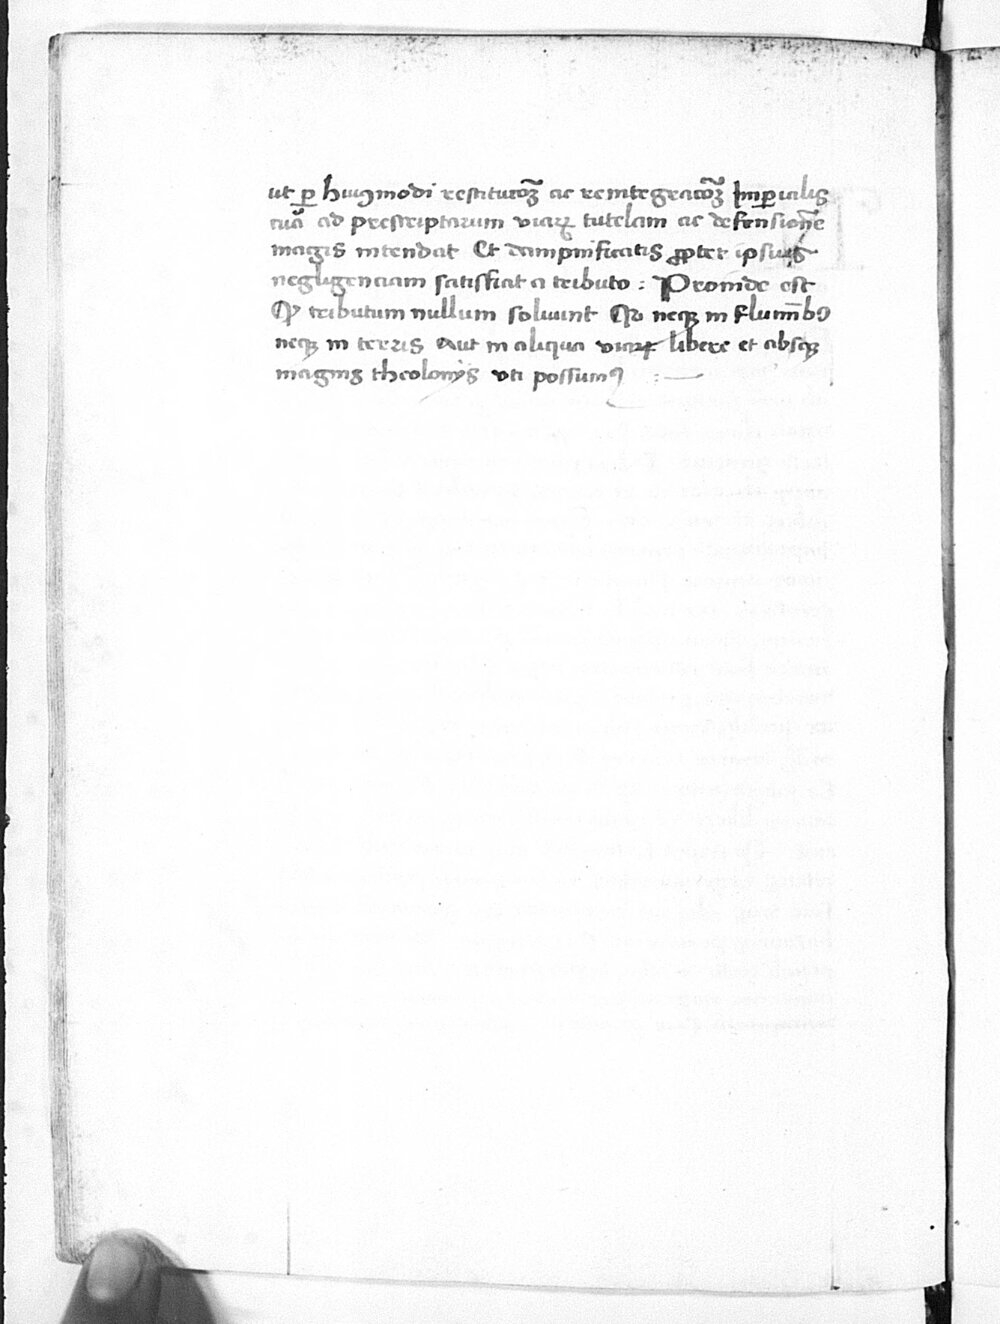 ut ꝑ huiꝰmodi restitutoꝝ ac reintegratoꝝ Imꝑialis
tua ad prescriptarum viaꝝ tutelam ac defensionē
magis intendat Et dampnificatis ꝓpter ipsius
negligenciam satisfiat a tributo : Proinde est
Qꝫ tributum nullum soluunt Qꝫ neqꝫ in flumībꝰ
neqꝫ in terris Aut in aliqua viaꝝ libere et absqꝫ
magnis theolonijs vti possumꝰ :—